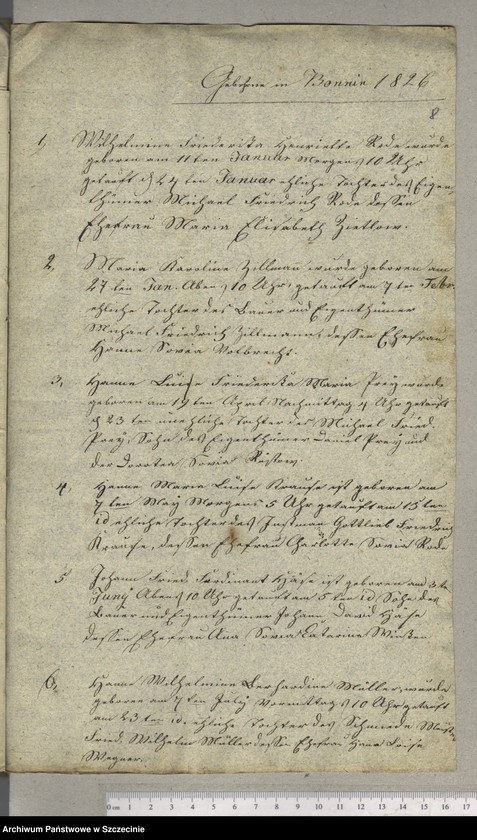 Gebohrne in Bonnin 1826
8
1, Wilhelmine Friederika Henriette Rode wurde
geboren am 11ten Januar Morgens 10 Uhr
getauft d 24ten Januar ehliche Tochter des Eigen-
thümer Michael Friedrich Rode dessen
Ehefrau Maria Elisabeth Zietlow.
2, Maria Karoline Zillmann wurde geboren am
27ten Jan. Abends 10 Uhr, getauft am 7ten Febr.
ehliche Tochter des Bauer und Eigenthümer
Michael Friedrich Zillmann, dessen Ehefrau
Hanne Sovia Volbrecht.
3, Hanne Luise Friedericka Maria Prey wurde
geboren am 19ten April Nachmittag 4 Uhr getauft
d 23ten unehliche Tochter des Michael Fried.
Prey, Sohn des Eigenthümer Daniel Prey und
der Dorotea Sovia
4, Hanne Maria Luise Krause ist geboren am
7ten May Morgens 5 Uhr getauft am 15ten
id ehliche Tochter des Instman Gottlieb Friedrich
Krause, dessen Ehefrau Charlotte Sovia Rode
5 Johann Fried. Ferdinant Häse ist geboren am 3te
Juny Abens 10 Uhr getauft am 5ten id, Sohn des
Bauer und Eigenthümer Johann David Häse
dessen Ehefrau Ana Sovia Catarine
6, Hanne Wilhelmine Berhardine Müller, wurde
geboren am 7ten July Vormittags 10 Uhr getauft
am 23ten id. ehliche Tochter des Schmiede
Fried. Wilhelm Müller dessen Ehefrau Hane Luise
Wegner.
0 cm 1 2 3 4 5 6 7 8 9 10 11 12 13 14 15 16 17
Archiwum Państwowe w Szczecinie